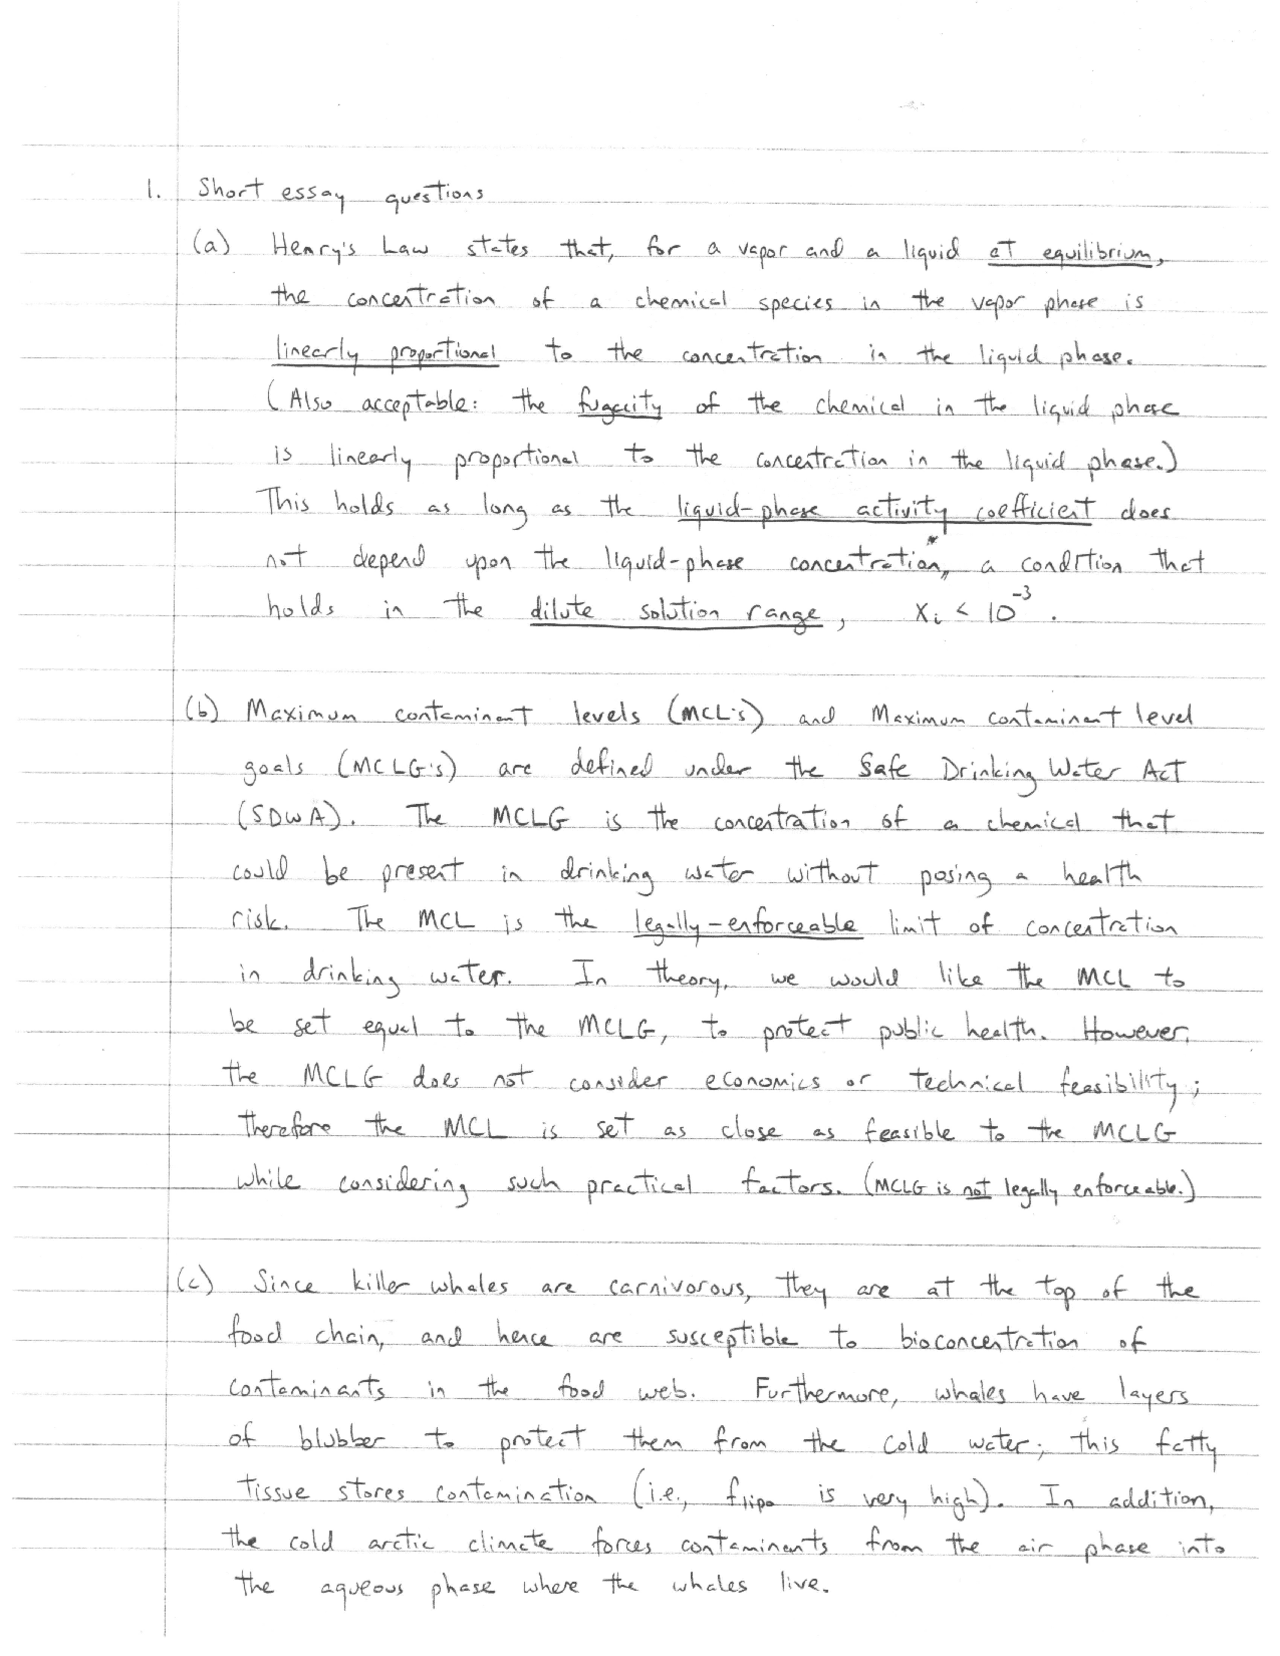 1. Short essay questions
(a) Henry's Law states that, for a vapor and a liquid at equilibrium,
the concentration of a chemical species in the vapor phase is
linearly proportional to the concentration in the liquid phase.
(Also acceptable: the fugacity of the chemical in the liquid phase
is linearly proportional to the concentration in the liquid phase.)
This holds as long as the liquid-phase activity coefficient does
not depend upon the liquid-phase concentration, a condition that
holds in the dilute solution range, xᵢ < 10⁻³.
(b) Maximum contaminant levels (MCL's) and Maximum contaminant level
goals (MCLG's) are defined under the Safe Drinking Water Act
(SDWA). The MCLG is the concentration of a chemical that
could be present in drinking water without posing a health
risk. The MCL is the legally-enforceable limit of concentration
in drinking water. In theory, we would like the MCL to
be set equal to the MCLG, to protect public health. However,
the MCLG does not consider economics or technical feasibility;
therefore the MCL is set as close as feasible to the MCLG
while considering such practical factors. (MCLG is not legally enforceable.)
(c) Since killer whales are carnivorous, they are at the top of the
food chain, and hence are susceptible to bioconcentration of
contaminants in the food web. Furthermore, whales have layers
of blubber to protect them from the cold water; this fatty
tissue stores contamination (i.e., flipo is very high). In addition,
the cold arctic climate forces contaminants from the air phase into
the aqueous phase where the whales live.